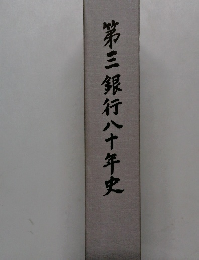 第三銀行八十年史